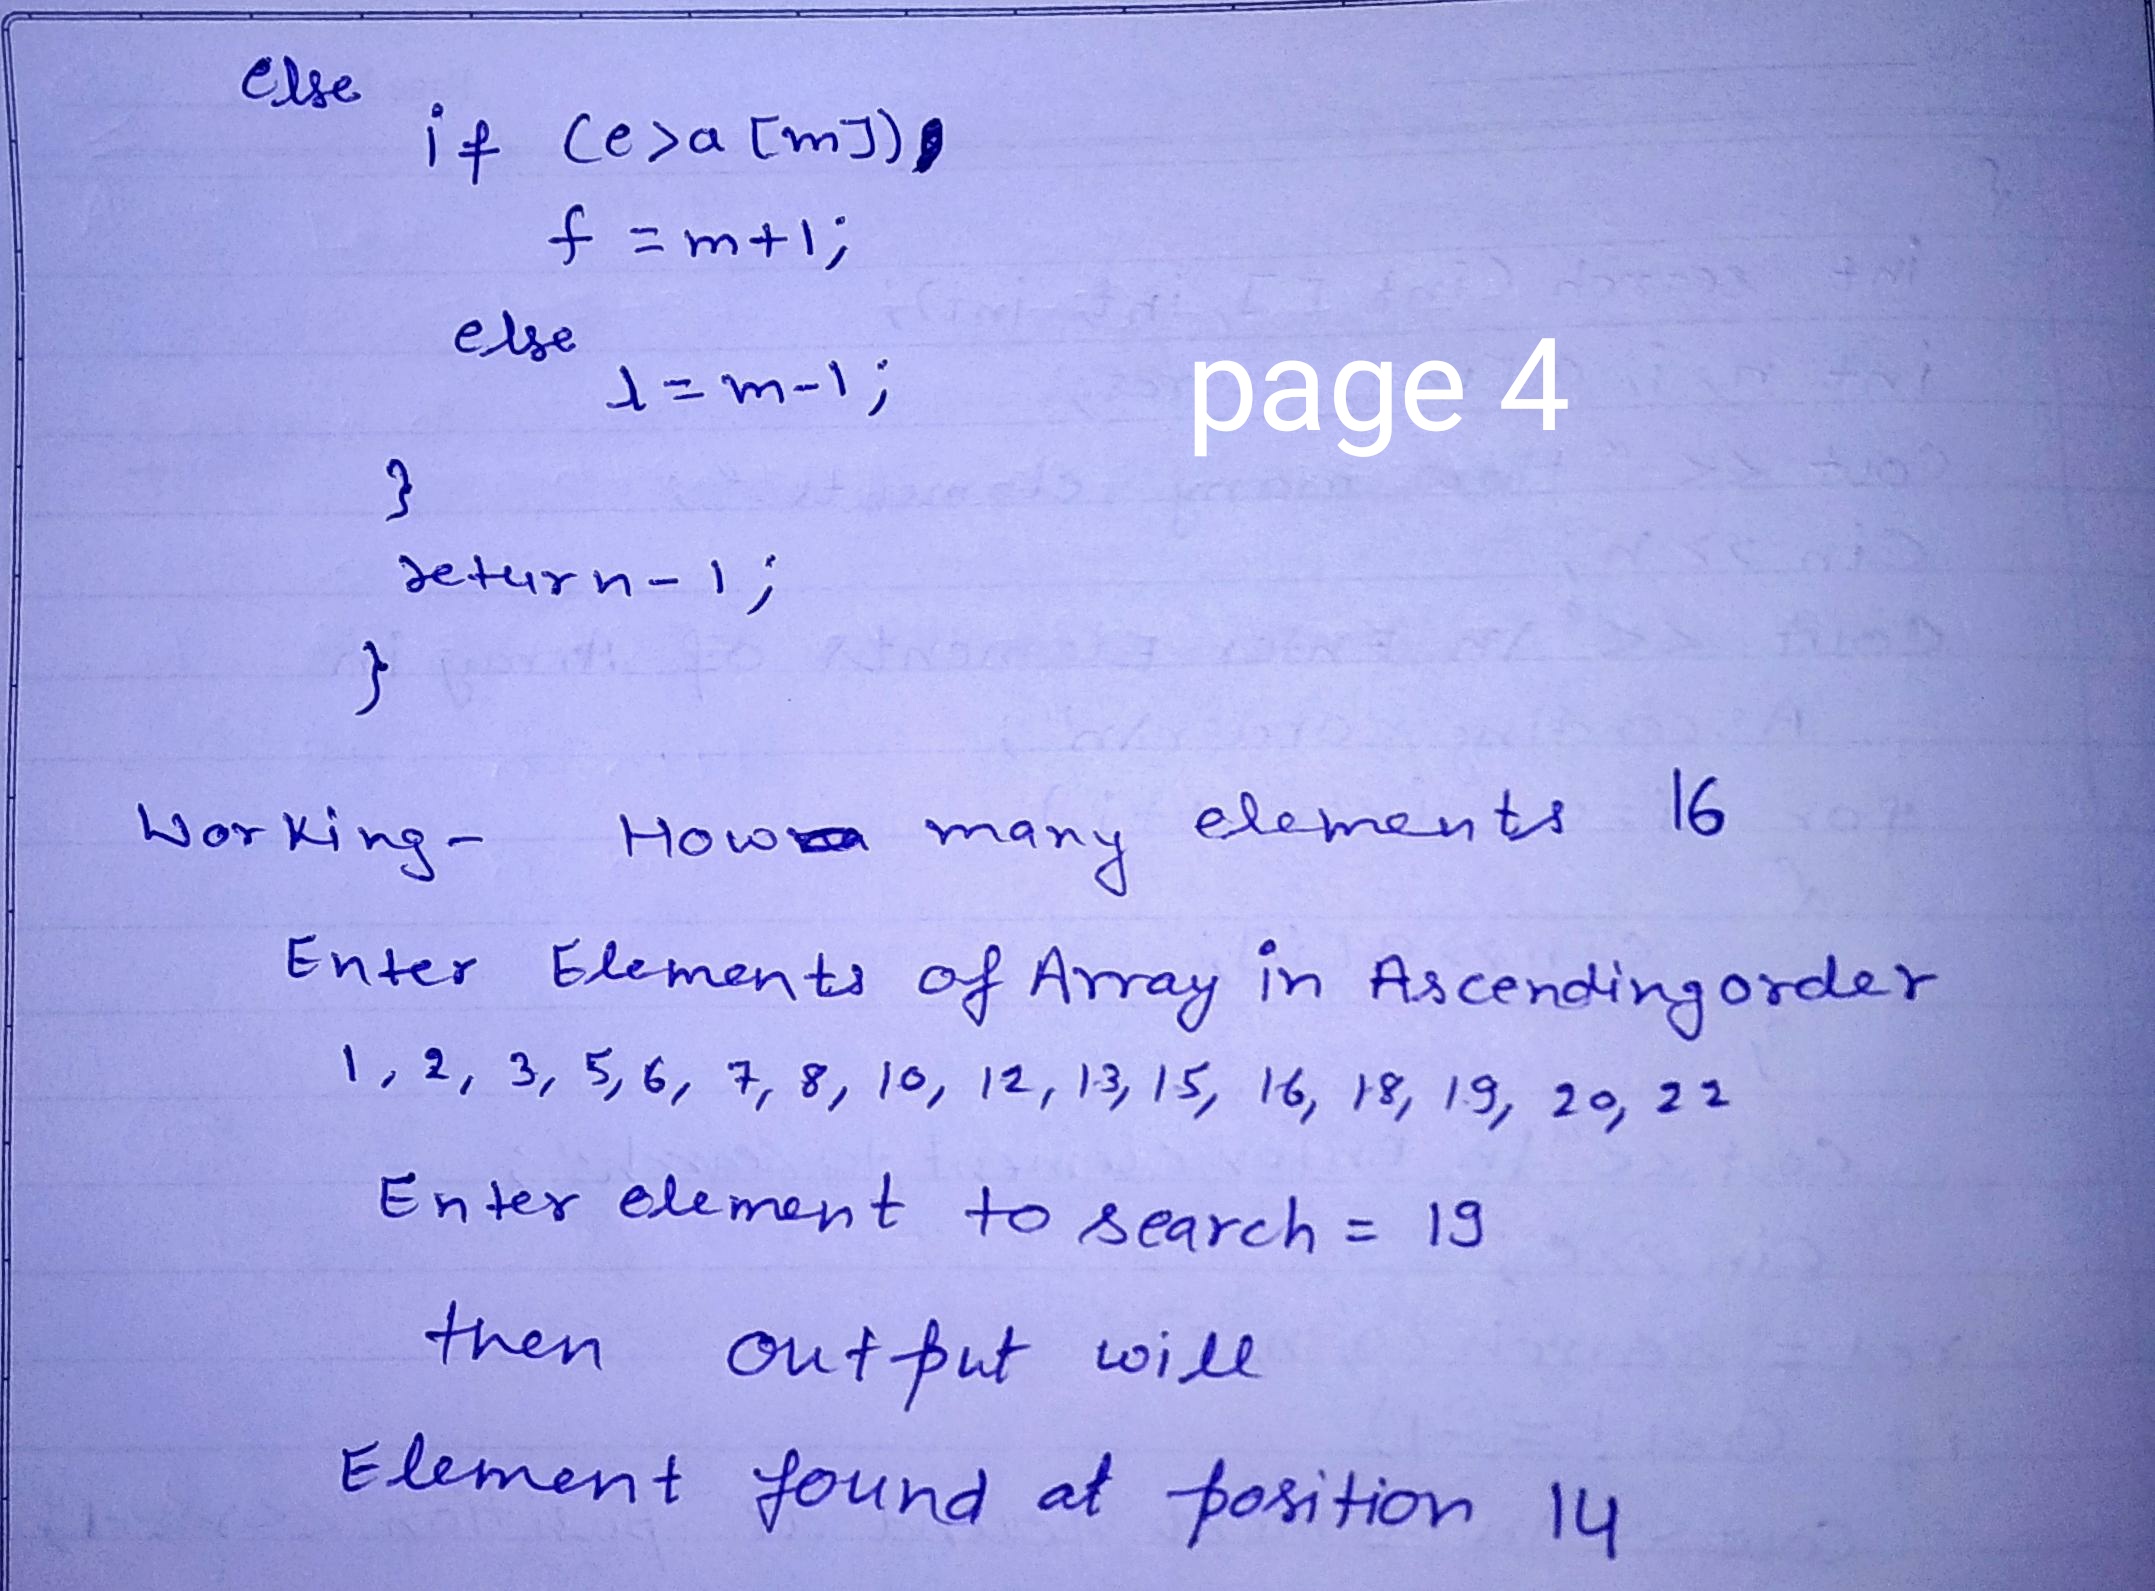 else
if (e>a[m])
f = m+1;
else
l = m-1;
page 4
}
return-1;
}
Working- How many elements 16
Enter Elements of Array in Ascending order
1, 2, 3, 5, 6, 7, 8, 10, 12, 13, 15, 16, 18, 19, 20, 22
Enter element to search = 19
then output will
Element found at position 14